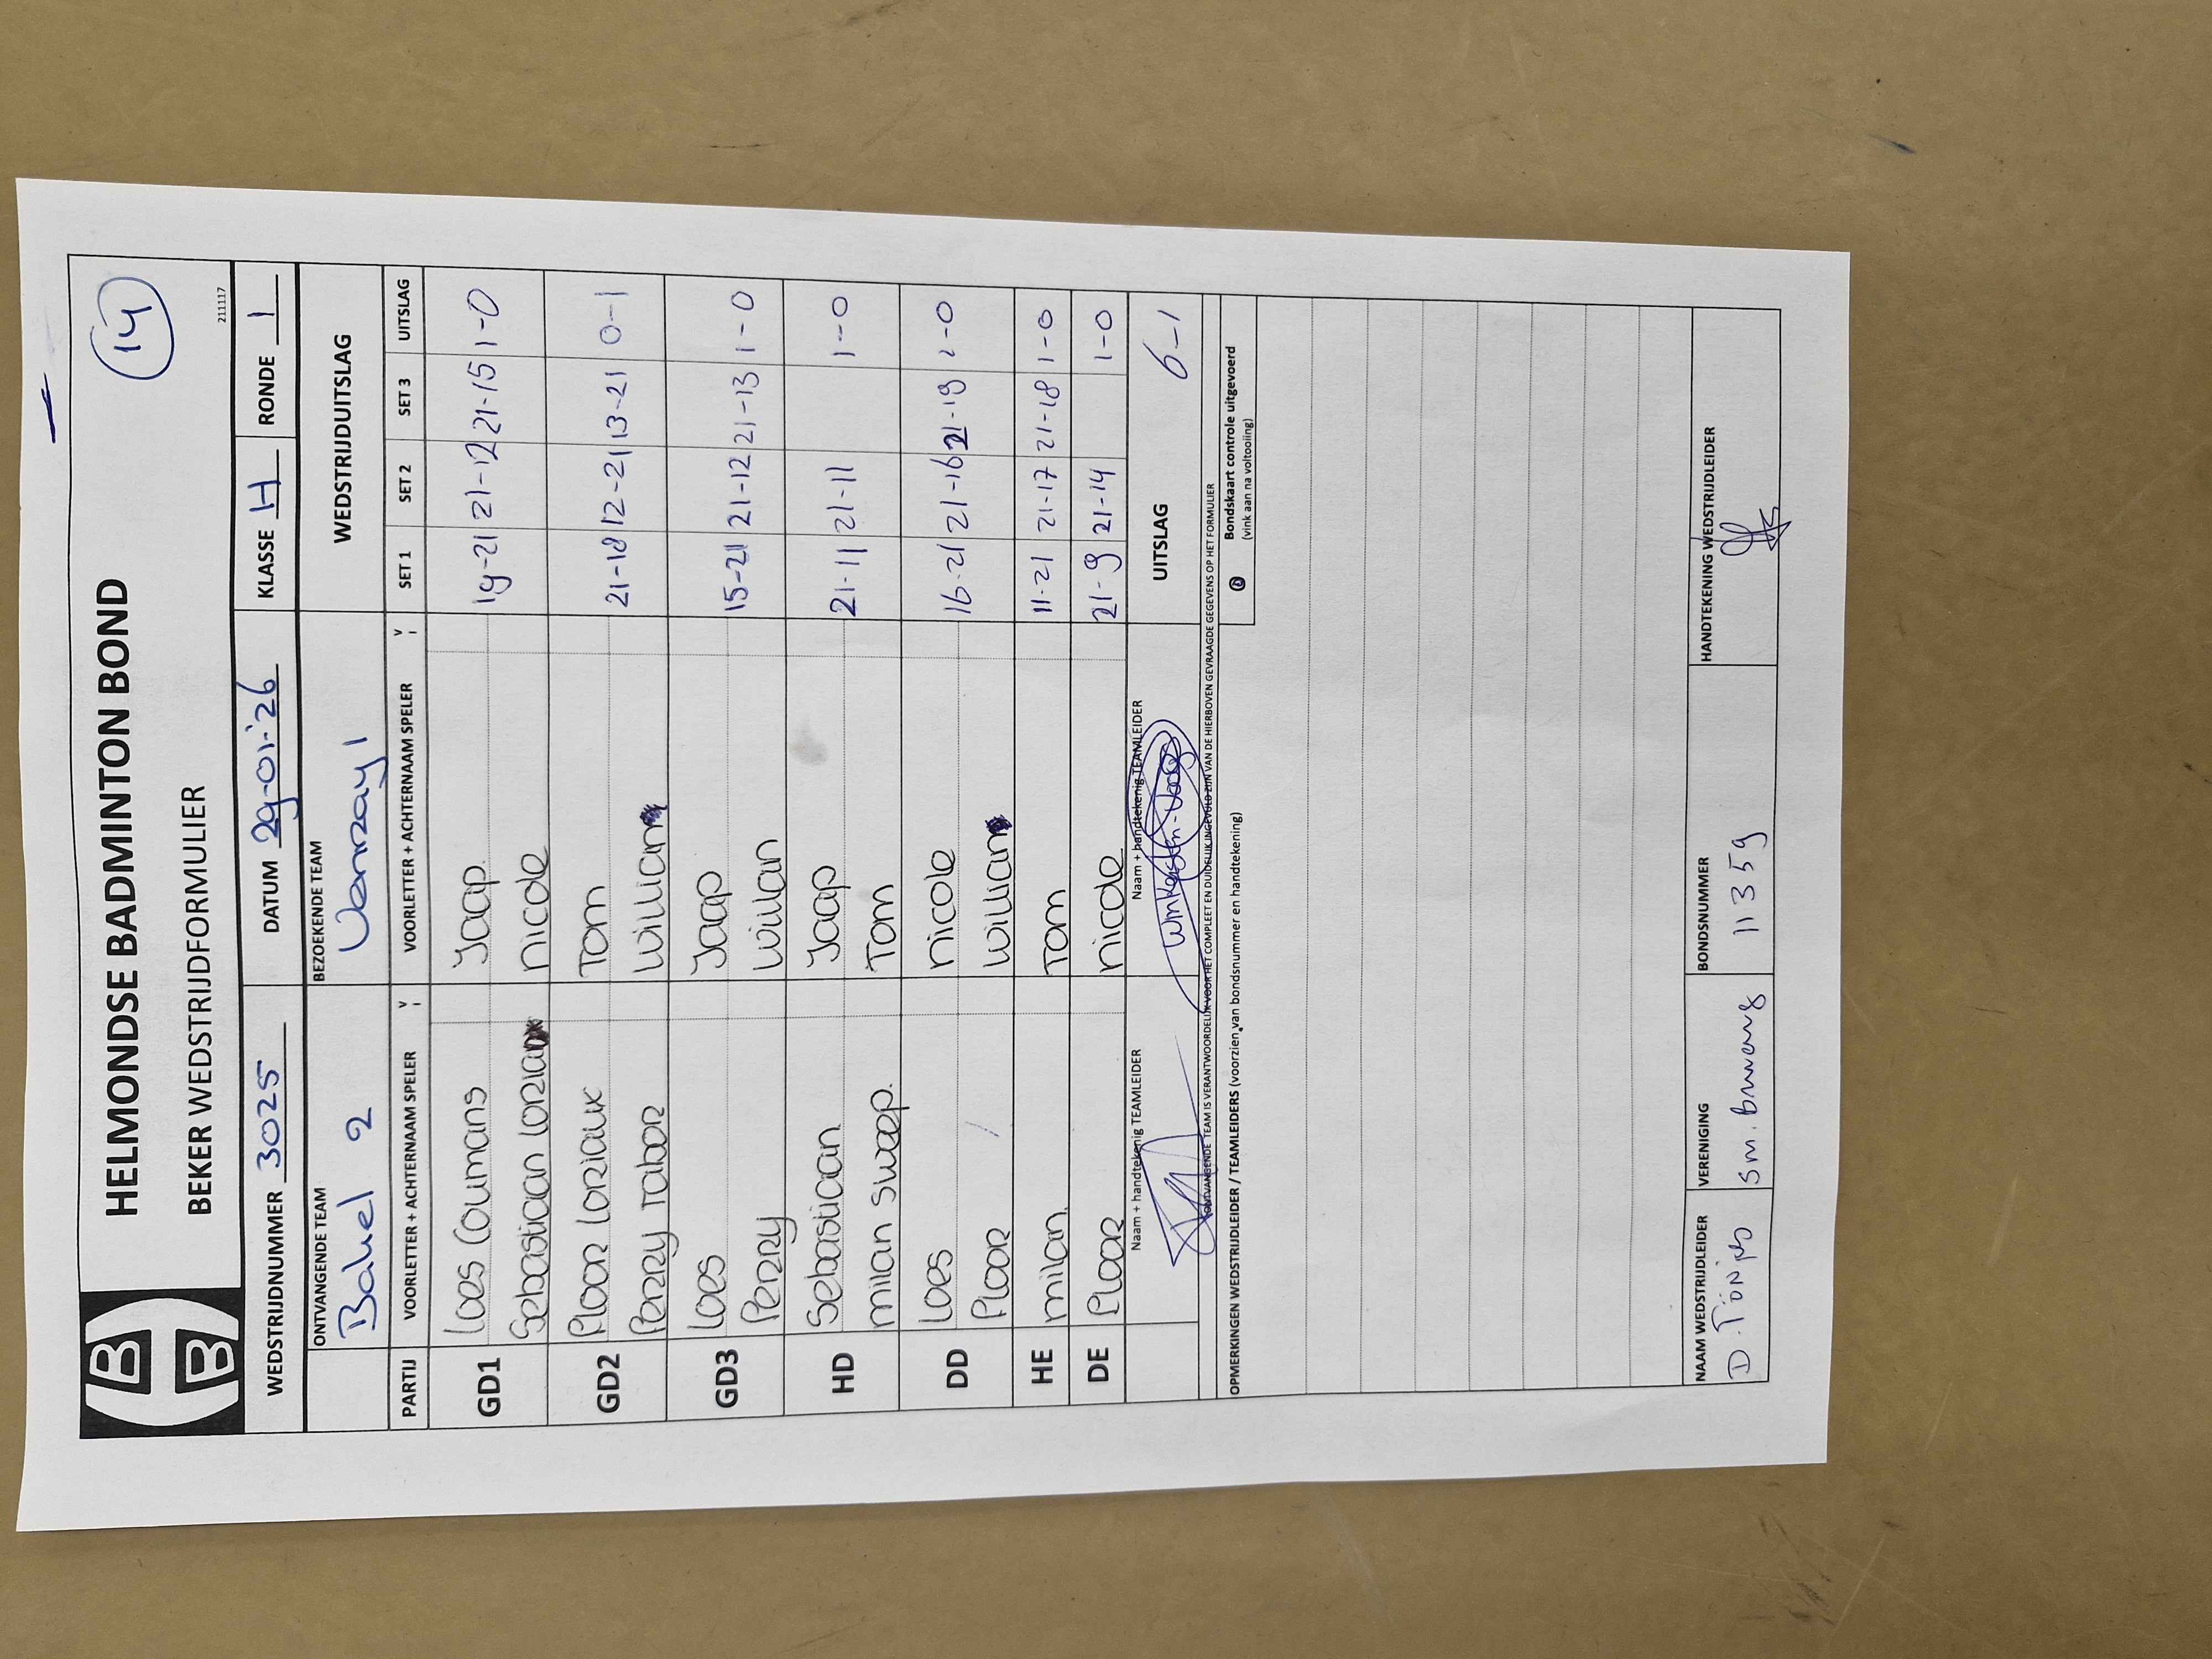 HELMONDSE BADMINTON BOND
14
BEKER WEDSTRIJDFORMULIER
211117
WEDSTRIJDNUMMER 3025 DATUM 29-01-'26 KLASSE H RONDE 1
ONTVANGENDE TEAM BEZOEKENDE TEAM WEDSTRIJDUITSLAG
Bakel 2 Venray 1
PARTIJ VOORLETTER + ACHTERNAAM SPELER V VOORLETTER + ACHTERNAAM SPELER V SET 1 SET 2 SET 3 UITSLAG
GD1 Loes Coumans Jaap 19-21 21-12 21-15 1-0
Sebastiaan Loriaux Nicole
GD2 Floor Loriaux Tom 21-18 12-21 13-21 0-1
Perry Tabor William
GD3 Loes Jaap 15-21 21-12 21-13 1-0
Perry Willian
HD Sebastiaan Jaap 21-11 21-11 1-0
milan sweep. Tom
DD Loes Nicole 16-21 21-16 21-19 1-0
Floor William
HE milan. Tom 11-21 21-17 21-18 1-0
DE Floor Nicole 21-9 21-14 1-0
Naam + handtekenig TEAMLEIDER Naam + handtekenig TEAMLEIDER UITSLAG 6-1
ONTVANGENDE TEAM IS VERANTWOORDELIJK VOOR HET COMPLEET EN DUIDELIJK INGEVULD ZIJN VAN DE HIERBOVEN GEVRAAGDE GEGEVENS OP HET FORMULIER
OPMERKINGEN WEDSTRIJDLEIDER / TEAMLEIDERS (voorzien van bondsnummer en handtekening)
Bondskaart controle uitgevoerd
(vink aan na voltooiing)
NAAM WEDSTRIJDLEIDER VERENIGING BONDSNUMMER HANDTEKENING WEDSTRIJDLEIDER
D. 11359